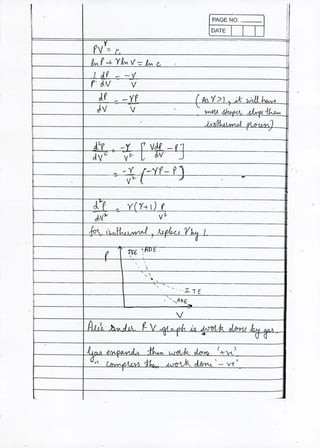 PAGE NO.
DATE
PV^γ = c
ln P + γ ln V = ln c
1/P dP/dV = -γ/V
dP/dV = -γP/V (As γ>1, it will have
more steeper slope than
isothermal process)
d²P/dV² = -γ/V² [V dP/dV - P]
= -γ/V² (-γP - P)
d²P/dV² = γ(γ+1)P/V²
for isothermal, replace γ by 1.
P ITE ADE
ITE
ADE
V
Area under P V graph is work done by gas.
Gas expands then work done '+ve'
" compress then work done '-ve'